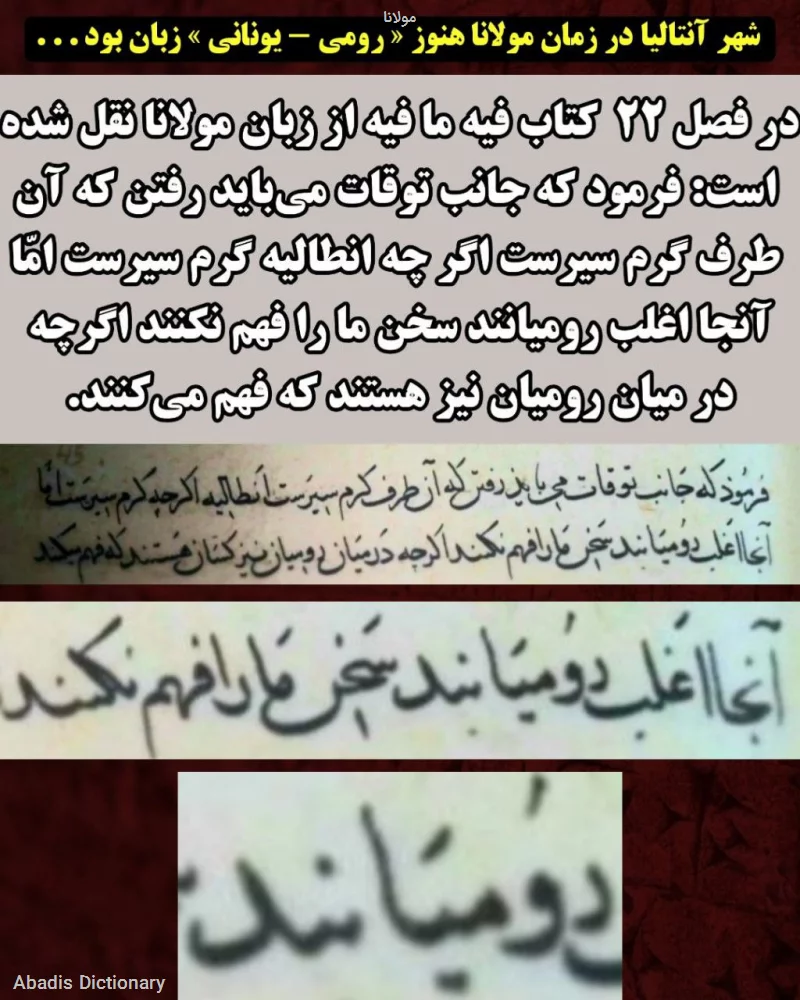 مولانا
شهر آنتالیا در زمان مولانا هنوز « رومی – یونانی » زبان بود...
در فصل ۲۲ کتاب فیه ما فیه از زبان مولانا نقل شده
است: فرمود که جانب توقات می‌باید رفتن که آن
طرف گرم سیرست اگر چه انطالیه گرم سیرست امّا
آنجا اغلب رومیانند سخن ما را فهم نکنند اگرچه
در میان رومیان نیز هستند که فهم می‌کنند.
فرموذ که جانب توقات می بایذ رفتن که آن طرف کرم سیرست انطالیه اکرجه کرم سیرست امّا
آنجا اغلب رومیانند سخن ما را فهم نکنند اکرجه در میان رومیان نیز کسان هستند که فهم میکنند
آنجا اغلب رومیانند سخن ما را فهم نکنند
رومیانند
Abadis Dictionary